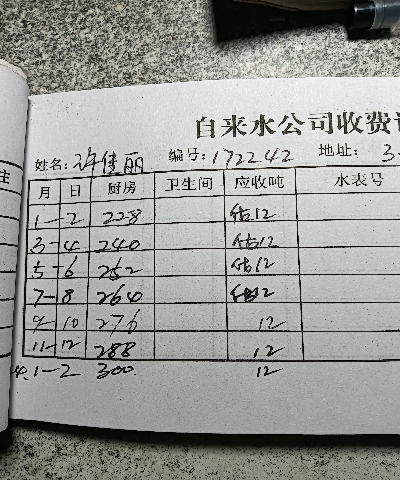 自来水公司收费
姓名:许佳丽 编号:172242 地址: 3-
月 日 厨房 卫生间 应收吨 水表号
1-2 228 估12
3-4 240 估12
5-6 252 估12
7-8 264 估12
9-10 276 12
11-12 288 12
1-2 300 12